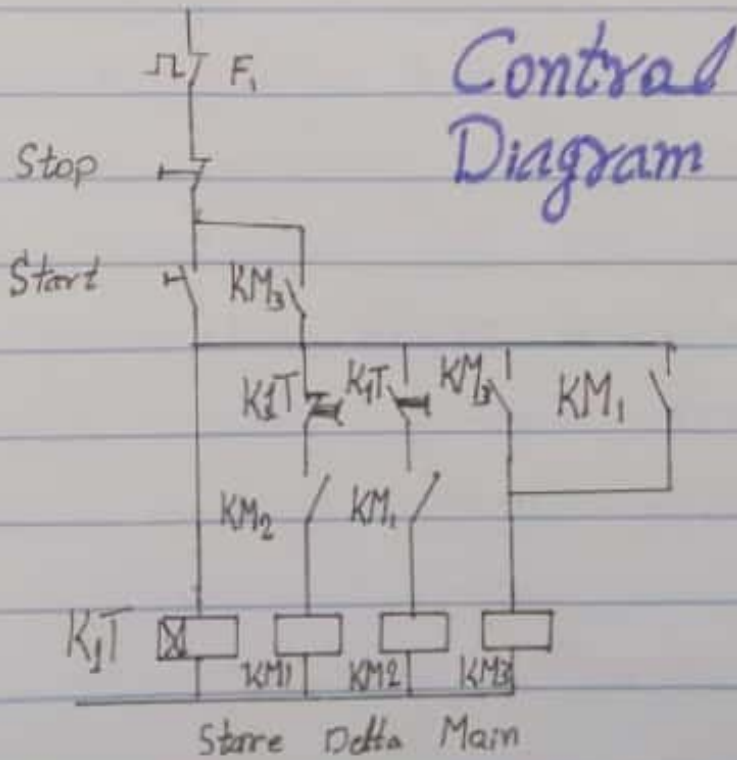 Control
Diagram
F₁
Stop
Start
KM₃
K1T
K₁T
KM₃
KM₁
KM₂
KM₁
K₁T
KM1
KM2
KM3
Stare Delta Main